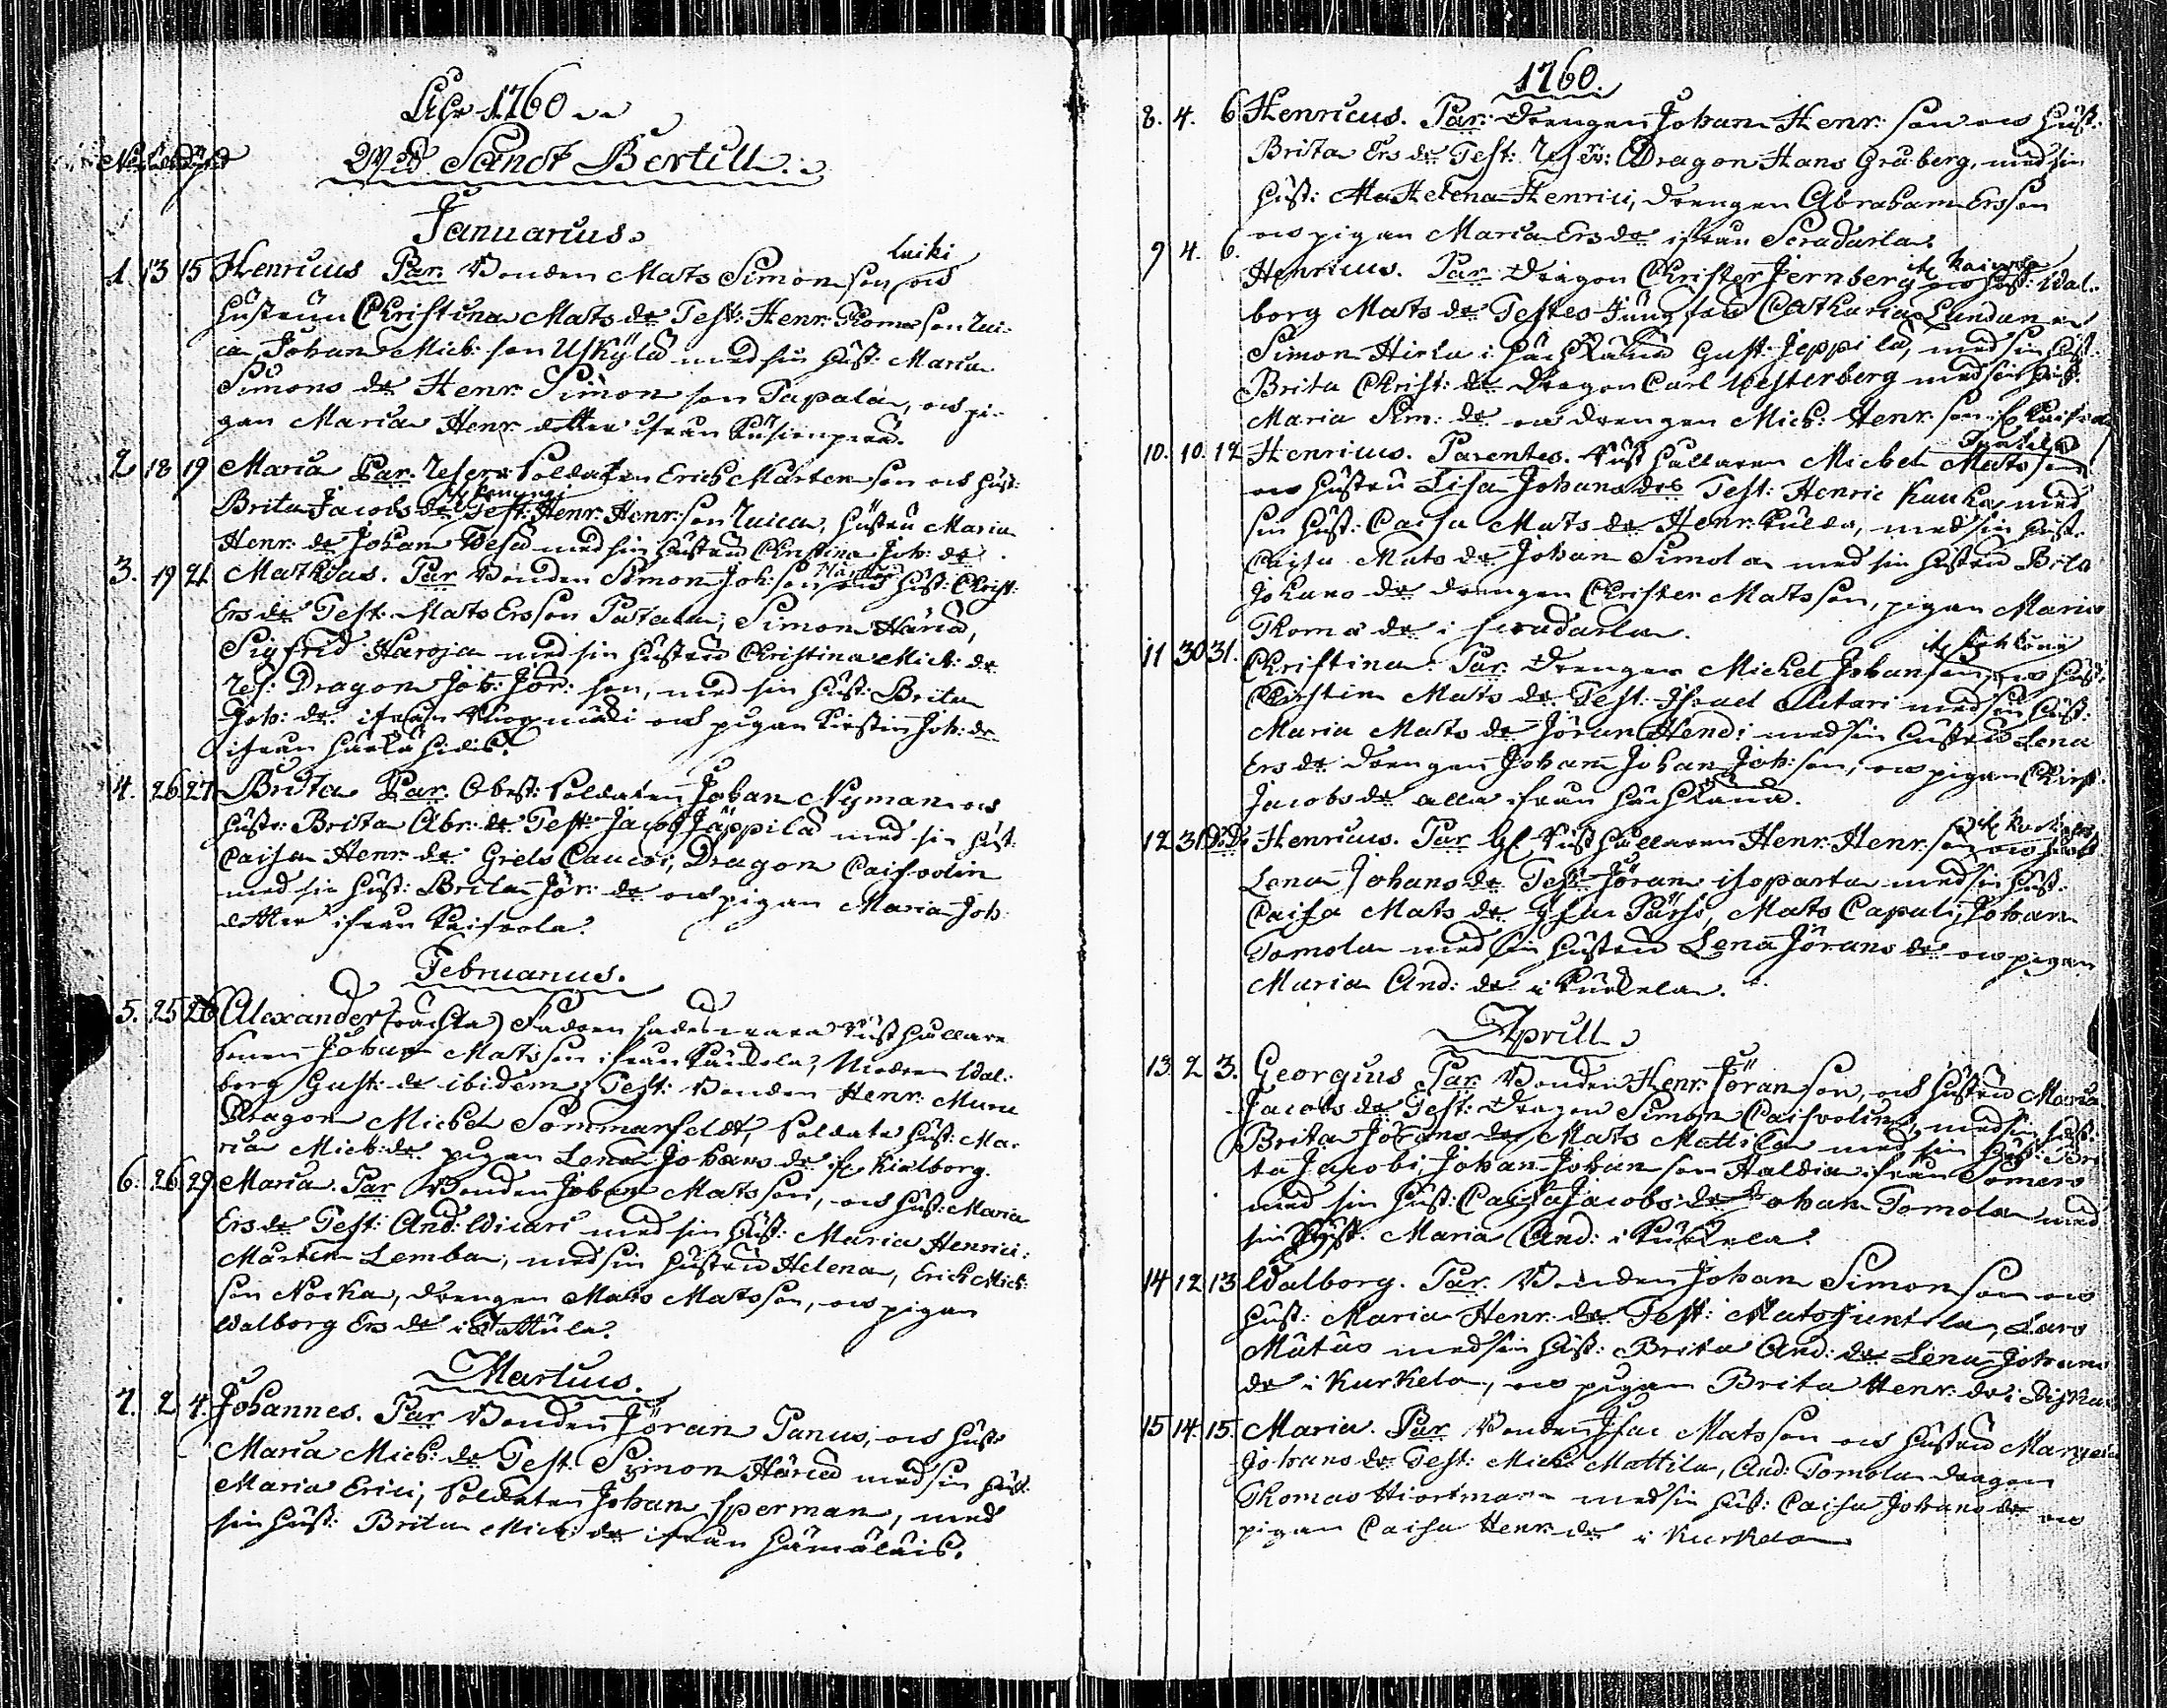 Åhr 1760
Wid Sanct Bertill.
Januarius.
Luiki
1. 13 15 Henricus Par. Bonden Mats Simonsson och
hustrun Christina Mats dr Test: Henr: Thomasson Lui-
cia Johan Mich: son Uskÿla med sin hust: Maria
Simons dr Henr: Simonson Papala, och pi-
gan Maria Henr: dotter ifrån
2 18 19 Maria Par. Reserv Soldaten Erich Mårtenson och hust:
Brita Jacobs dr Test: Henr: Henr: son Luica, hustru Maria
Henr: dr Johan Wesa med sin hustru Christina Joh: dr
3. 19 21 Mathias. Par Bonden Simon Joh: son och hust: Christ:
Ers dr Test. Mats Ersson Patala, Simon Häriä,
Sigfrid Haroja med sin hustru Christina Mich: dr
Res: Dragon Joh: Jör: son, med sin hust: Brita
Joh: dr ifrån och pigan Kirstin Joh: dr
ifrån
4. 26 27 Brita Par. Soldaten Johan Nyman och
hustr: Brita Abr: dr Test: Jacob Jäppilä med sin hust:
Caisa Henr: dr Grels Caucoi, Dragon Caisvolin
med sin hust: Brita Jör: dr och pigan Maria Joh:
dotter ifrån Kaisvola.
Februarius.
5. 25 26 Alexander (oächta) Fadren vara Rusthållare
Sonen Johan Matsson ifrån Kurckela, Modren Wal-
borg Gust: dr ibidem; Test: Bonden Henr: Muru
Dragon Michel Sommarfeldt, Soldats hust: Ma-
ria Mich: dr pigan Lena Johans dr
6. 26 29. Maria. Par Bonden Johan Matsson, och hust: Maria
Ers dr Test: And: Wicari med sin hust: Maria Henrici:
Mårten Lemba, med sin hustru Helena, Erich Mich:
son Nocka, Drengen Mats Matsson, och pigan
Walborg Ers dr i Wattula.
Martius.
7. 2 4. Johannes. Par Bonden Jöran Panus, och hust:
Maria Mich: dr Test. Simon Häriä med sin hust:
Maria Erici, Soldaten Johan Sperman, med
sin hust: Brita Mich: dr ifrån Hämäläis.
1760.
8. 4. 6 Henricus. Par: Drengen Johan Henr: son och hust:
Brita Ers dr Test: Reserv: Dragon Hans Gruberg, med sin
hust: Helena Henrici, Drengen Abraham Ersson
och pigan Maria Ers dr ifrån
9 4. 6. Henricus. Par Dragon Christer Jernberg och hust: Wal-
borg Mats dr Testes Jungfru Catharia Lundan
Simon Hirla i Gust: Jeppilä, med sin hust:
Brita Christ: dr Dragon Carl Westerberg med sin hust:
Maria Sim: dr och drengen Mich: Henr: son
10. 10. 12 Henricus. Parentes. Rusthållaren Michel Matsson
och hustru Lisa Johans dr Test: Henric Kauka, med
sin hust: Caisa Mats dr Henr: med sin hust:
Caisa Mats dr Johan Simola med sin hustru Brita
Johans dr drengen Christer Matsson, pigan Maria
Thomas dr i
11 30 31. Christina. Par Drengen Michel Johansson, och hust:
Christin Mats dr Test. Israel Altari med sin hust:
Maria Mats dr Jöran Hendi med sin hustru Lena
Ers dr drengen Johan Johan Joh: son, och pigan Christ:
Jacobs dr alla ifrån
12 31 Dito Henricus. Par Rusthållaren Henr: Henr: son och hust:
Lena Johans dr Test: Jöran Isoparta med sin hust:
Caisa Mats dr Isac Pärsi, Mats Capali, Johan
Tomola med sin hustru Lena Jörans dr och pigan
Maria And: dr i Kurkela.
Aprill
13 2 3. Georgius Par. Bonden Henr: Jöranson, och hustru Maria
Jacobs dr Test: Dragon Simon Caisvolin, med sin hust:
Brita Jörans dr Mats Mattila med sin hust: Bri
ta Jacobi, Johan Johanson Haldia ifrån Somero
med sin hust: Caisa Jacobs dr Johan Tomola med
sin hust. Maria And: i Kurkela.
14 12 13 Walborg. Par. Bonden Johan Simonson och
hust: Maria Henr: dr Test: Mats Juntila, Lars
Matus med sin hust: Brita And: dr Lena Johans
dr i Kurkela, och pigan Brita Henr: dr i
15 14. 15. Maria. Par Bonden Isac Matsson och hustru Margeta
Johans dr Test: Mich: Mattila, And: Tomola dragon
Thomas Hiortman med sin hust: Caisa Johans dr och
pigan Caisa Henr: dr i Kurkela